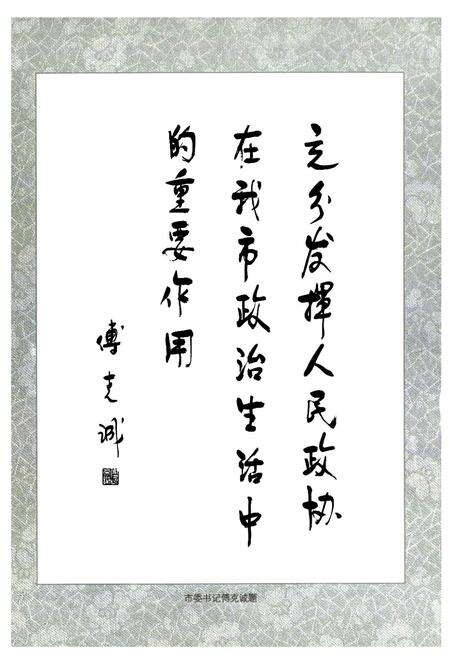 充分发挥人民政协
在我市政治生活中
的重要作用
傅克诚
市委书记傅克诚题